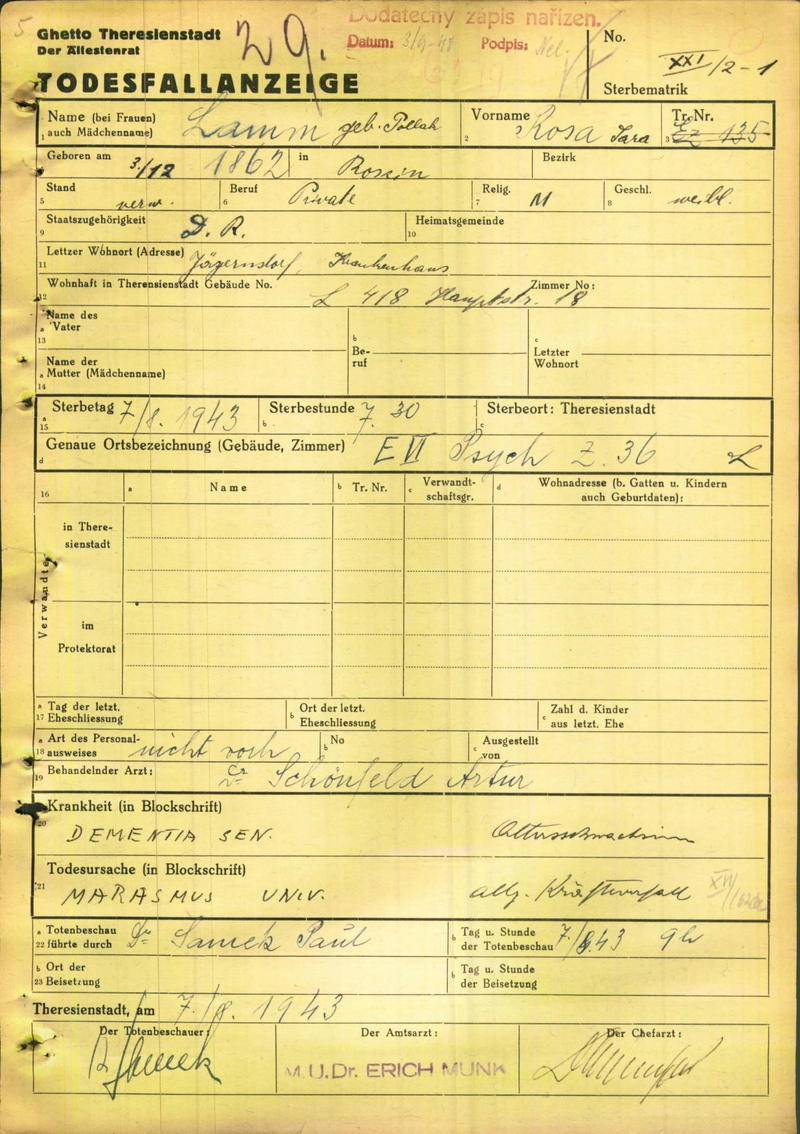 5
Ghetto Theresienstadt
Der Ältestenrat
29.
Dodatečný zápis nařízen.
Datum: Podpis:
No.
XXI/2-1
TODESFALLANZEIGE
Sterbematrik
Name (bei Frauen) Lamm geb. Pollak Vorname Rosa Sara Tr. Nr.
1 auch Mädchenname) 2 3 135
Geboren am 3/12 1862 in Bezirk
Stand verw. Beruf Private Relig. M Geschl. weibl.
5 6 7 8
Staatszugehörigkeit D. R. Heimatsgemeinde
9 10
Lettzer Wohnort (Adresse) Jägerndorf, Krankenhaus
11
Wohnhaft in Theresienstadt Gebäude No. L 418 Hauptstr. Zimmer No: 18
12
Name des
a Vater
13
b Be-
ruf
c Letzter
Wohnort
Name der
a Mutter (Mädchenname)
14
a Sterbetag 7/8. 1943 b Sterbestunde 7.30 c Sterbeort: Theresienstadt
15
d Genaue Ortsbezeichnung (Gebäude, Zimmer) E VI Psych Z. 36 L
16 a Name b Tr. Nr. c Verwandt-
schaftsgr. d Wohnadresse (b. Gatten u. Kindern
auch Geburtdaten):
Verwandte
in There-
sienstadt
im
Protektorat
a Tag der letzt.
17 Eheschliessung
b Ort der letzt.
Eheschliessung
c Zahl d. Kinder
aus letzt. Ehe
a Art des Personal-
18 ausweises nicht vorh
b No
c Ausgestellt
von
19 Behandelnder Arzt: Dr Schönfeld Artur
Krankheit (in Blockschrift)
20 DEMENTIA SEN. Altersschwachsinn
Todesursache (in Blockschrift)
21 MARASMUS UNIV. allg. Kräfteverfall
a Totenbeschau
22 führte durch Dr Samek Paul
b Tag u. Stunde
der Totenbeschau 7/8.43 9h
b Ort der
23 Beisetzung
b Tag u. Stunde
der Beisetzung
Theresienstadt, am 7./8. 1943
Der Totenbeschauer: Der Amtsarzt: Der Chefarzt:
Samek M.U.Dr. ERICH MUNK